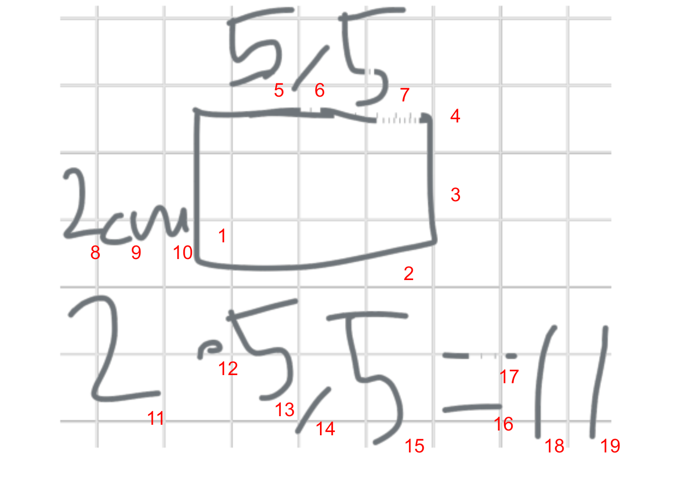 5,5
5 6 7
4
3
2cm
1
8 9 10
2
2·5,5=11
12 17
11 13 14 15 16 18 19